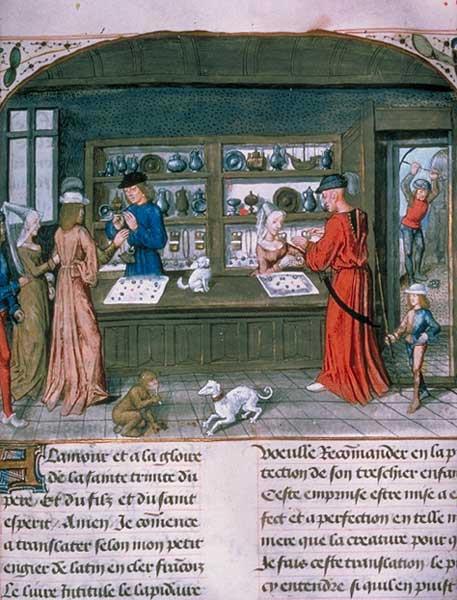 A lamour et a la gloire
de la sainte trinite du
pere / Et du filz et du saint
esperit / Amen / Je comence
a translater selon mon petit
engier de latin en cler francoiz
Le livre Intitule le lapidaire
voeulle Recomander en la p
tection de son treschier enfan
Ceste emprinse estre mise a e
fect et a perfection en telle m
niere que la creature pour q
Je fais ceste translation / le p
cy entendre si quil en puist